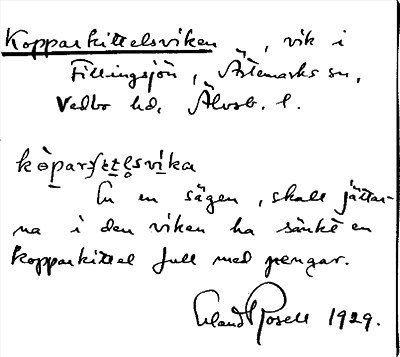 Kopparkittelsviken, vik i
Fillingsjön, Ärtemarks sn,
Vedbo hd, Älvsb. l.
En en sägen, skall jättar-
na i den viken ha sänkt en
kopparkittel full med pengar.
Erland Rosell 1929.